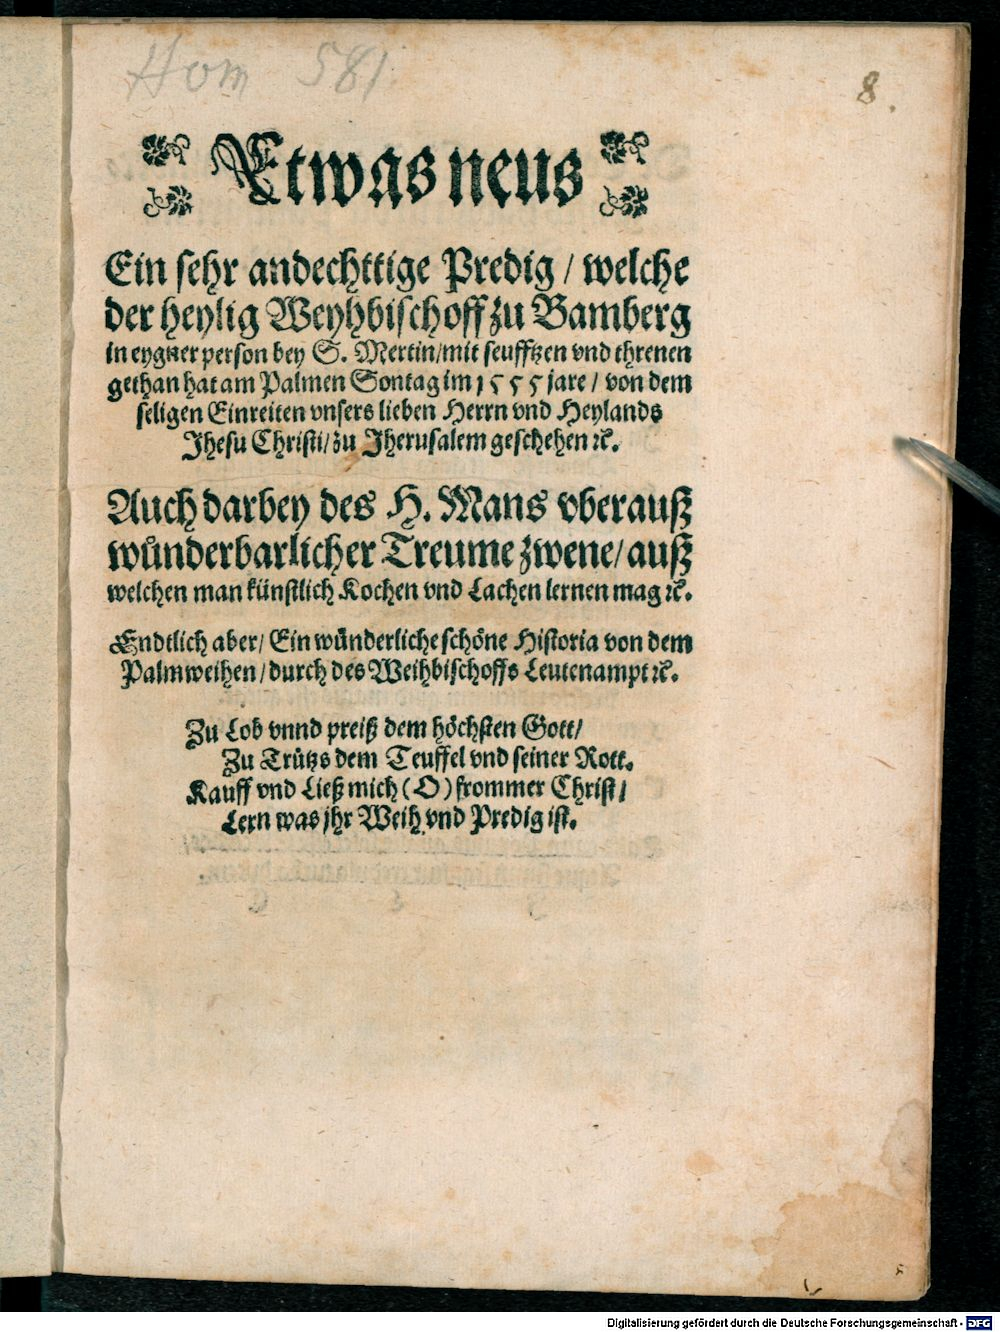 Hom 581.
8.
Etwas neus
Ein sehr andechttige Predig / welche
der heylig Weyhbischoff zu Bamberg
in eygner person bey S. Mertin / mit seufftzen vnd threnen
gethan hat am Palmen Sontag im 1555 jare / von dem
seligen Einreiten vnsers lieben Herrn vnd Heylands
Jhesu Christi / zu Jherusalem geschehen ꝛc.
Auch darbey des H. Mans vberauß
wůnderbarlicher Treume zwene / auß
welchen man künstlich Kochen vnd Lachen lernen mag ꝛc.
Endtlich aber / Ein wůnderliche schöne Historia von dem
Palmweihen / durch des Weihbischoffs Leutenampt ꝛc.
Zu Lob vnnd preiß dem höchsten Gott /
Zu Trůtzs dem Teuffel vnd seiner Rott.
Kauff vnd Ließ mich (O) frommer Christ /
Lern was jhr Weih vnd Predig ist.
Digitalisierung gefördert durch die Deutsche Forschungsgemeinschaft - DFG